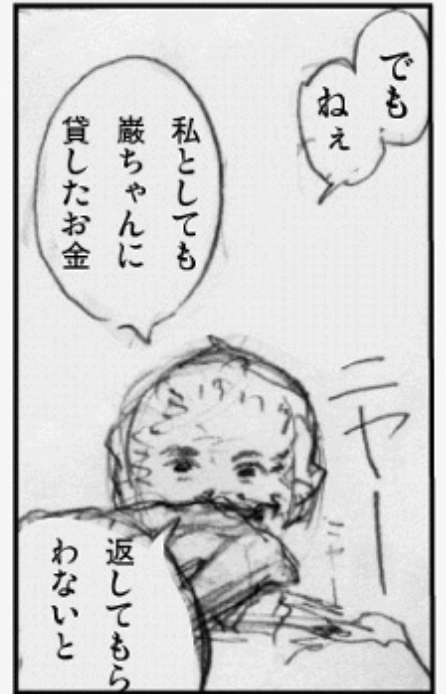 でも
ねぇ
私としても
巌ちゃんに
貸したお金
ニヤー
ニヤー
返してもら
わないと